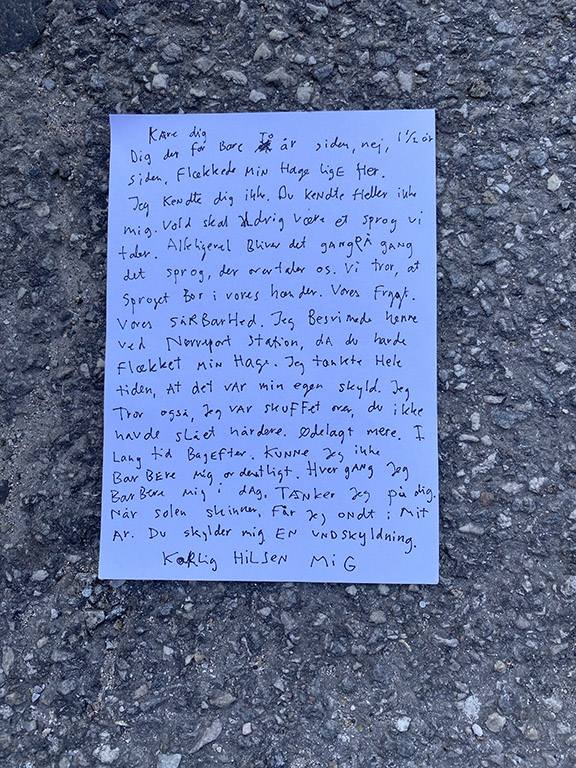 Kære dig
Dig der for Bare To år siden, nej, 1 1/2 år
siden, flækkede min Hage lige Her.
Jeg Kendte dig ikke. Du Kendte Heller ikke
mig. Vold skal Aldrig være et sprog vi
taler. Alligevel Bliver det gang På gang
det sprog, der overtaler os. Vi tror, at
Sproget Bor i vores hænder. Vores Frygt.
Vores SåRBarHed. Jeg Besvimede henne
ved Nørreport Station, da du havde
Flækket Min Hage. Jeg tænkte Hele
tiden, At det var min egen skyld. Jeg
Tror også, Jeg var skuffet over, du ikke
havde slået hårdere. Ødelagt mere. I
Lang tid Bagefter. Kunne Jeg ikke
BarBere mig ordentligt. Hver gang Jeg
BarBere mig i dag. Tænker Jeg på dig.
Når solen skinner. Får Jeg ondt i Mit
Ar. Du skylder mig EN UNDskyldning.
Kærlig HiLSEN MiG